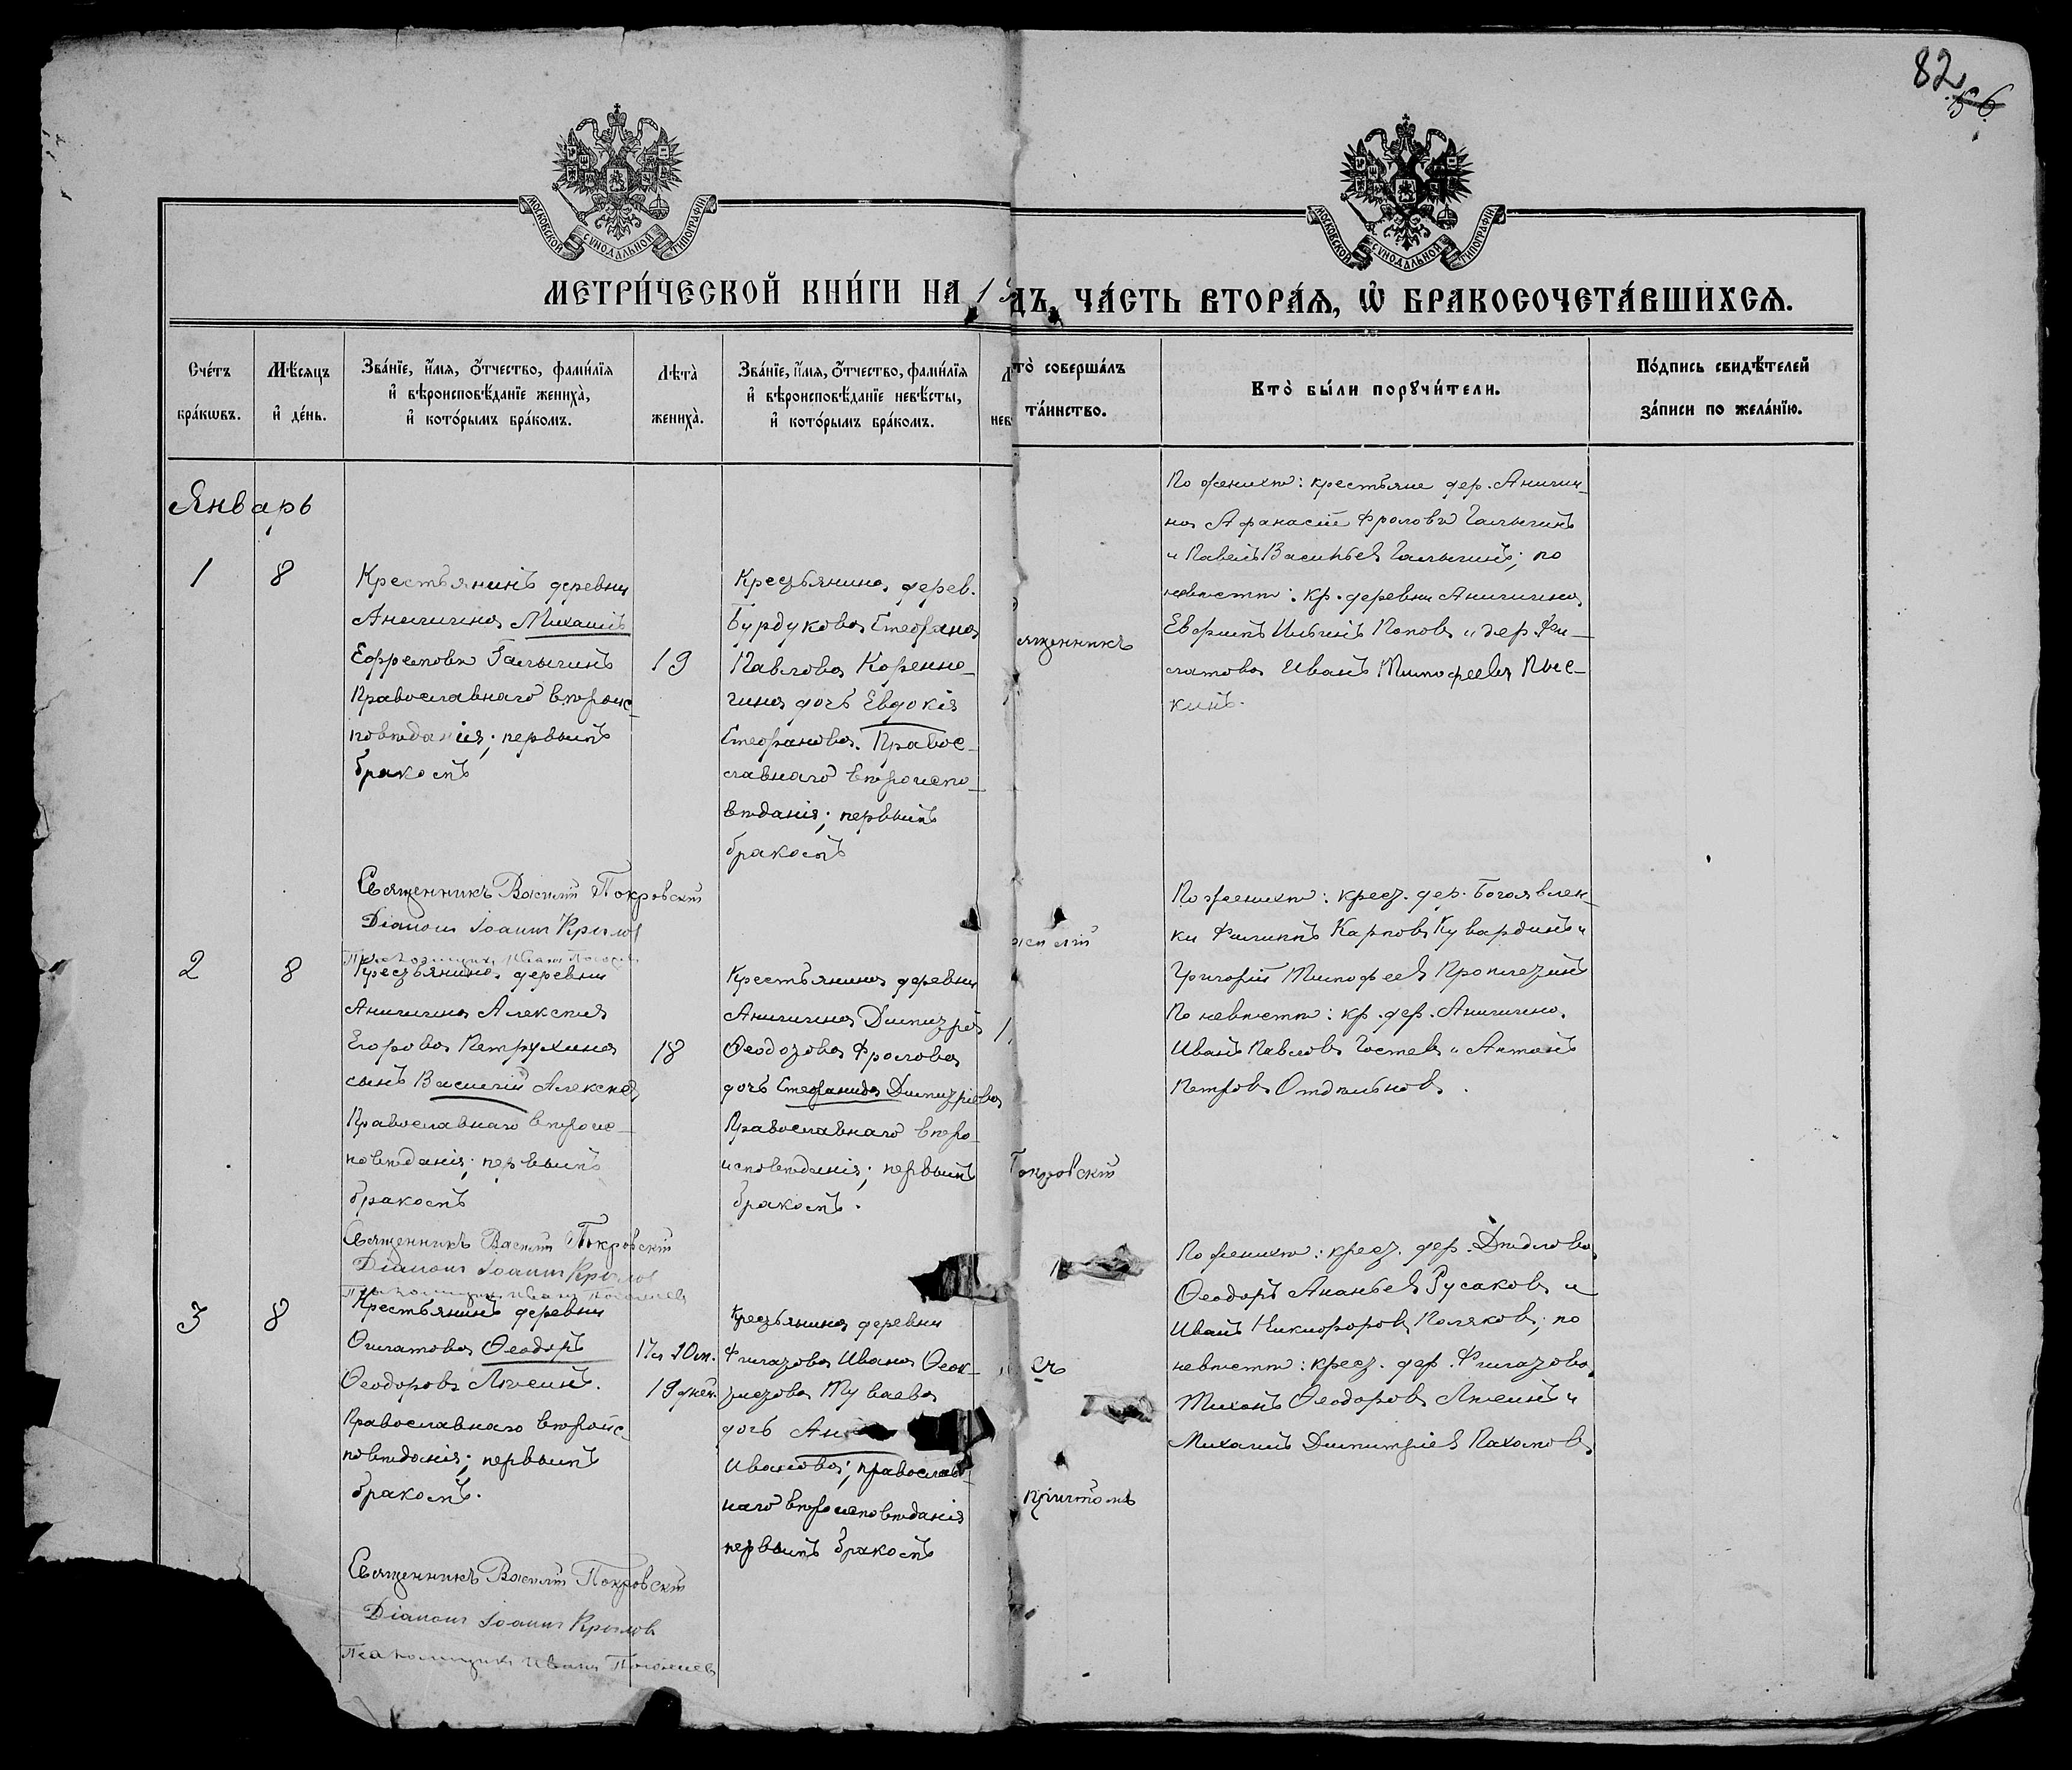 82
56
МОСКОВСКОЙ СѴНОДАЛЬНОЙ ТИПОГРАФІИ
МОСКОВСКОЙ СѴНОДАЛЬНОЙ ТИПОГРАФІИ
МЕТРИ́ЧЕСКОЙ КНИ́ГИ НА 19
ДЪ, ЧА́СТЬ ВТОРА́Ѧ, Ѡ҆ БРАКОСОЧЕТА́ВШИХСѦ.
Сче́тъ
бра́кѡвъ.
Мѣ́сѧцъ
и҆ де́нь.
Зва́нїе, и҆́мѧ, ѻ҆́тчество, фами́лїѧ
и҆ вѣроисповѣ́данїе жениха̀,
и҆ кото́рымъ бра́комъ.
Лѣ́та̀
жениха̀.
Зва́нїе, и҆́мѧ, ѻ҆́тчество, фами́лїѧ
и҆ вѣроисповѣ́данїе невѣ́сты,
и҆ кото́рымъ бра́комъ.
Л
нев
то̀ соверша́лъ
та́инство.
Кто̀ бы́ли порꙋчи́тели.
По́дпись свидѣ́телей
за́писи по жела́нїю.
Январь
1
8
Крестьянинъ деревни
Аничкина Михаилъ
Ефремовъ Галыгинъ
Православнаго вѣроис-
повѣданія; первымъ
бракомъ
19
Крестьянина дерев.
Бурдукова Стефана
Павлова Кореню-
гина дочь Евдокія
Стефанова. Правос-
лавнаго вѣроиспо-
вѣданія; первымъ
бракомъ
ященникъ
По женихѣ: крестьяне дер. Анички-
на Афанасій Фроловъ Галыгинъ
и Павелъ Васильевъ Галыгинъ; по
невѣстѣ: кр. деревни Аничкина
Ильинъ Поповъ и дер. Фи-
латова Иванъ Тимофеевъ Пыс-
кинъ.
Священникъ Василій Покровскій
Діаконъ Іоаннъ Крыловъ
Псаломщикъ Иванъ
2
8
Крестьянина деревни
Аничкина Алексѣя
Егорова Петрухина
сынъ Василій Алексѣев
Православнаго вѣроис-
повѣданія; первымъ
бракомъ
18
Крестьянина деревни
Аничкина Димитрія
Ѳеодотова Фролова
дочь Стефанида Димитріева
Православнаго вѣро-
исповѣданія; первымъ
бракомъ.
1
силій
Покровскій
По женихѣ: крест. дер. Богоявлен-
ки Филиппъ Карповъ Кувардинъ и
Григорій Тимофеевъ
По невѣстѣ: кр. дер. Аничкина.
Иванъ Павловъ Гостевъ и Антонъ
Петровъ Отдѣльновъ.
Священникъ Василій Покровскій
Діаконъ Іоаннъ Крыловъ
Псаломщикъ Иванъ
3
8
Крестьянинъ деревни
Филатова Ѳеодоръ
Ѳеодоровъ
Православнаго вѣроис-
повѣданія; первымъ
бракомъ.
17л 10м.
19 дней.
Крестьянина деревни
Филатова Ивана Ѳеок-
тистова Туваева
дочь Ан
Иванова; православ-
наго вѣроисповѣданія
первымъ бракомъ
съ
причтомъ
По женихѣ: крест. дер. Дѣдлова
Ѳеодоръ Ананьевъ Русаковъ и
Иванъ Никифоровъ Поляковъ; по
невѣстѣ: крест. дер. Филатова
Тихонъ Ѳеодоровъ
Михаилъ Димитріевъ Пахомовъ
Священникъ Василій Покровскій
Діаконъ Іоаннъ Крыловъ
Псаломщикъ Иванъ